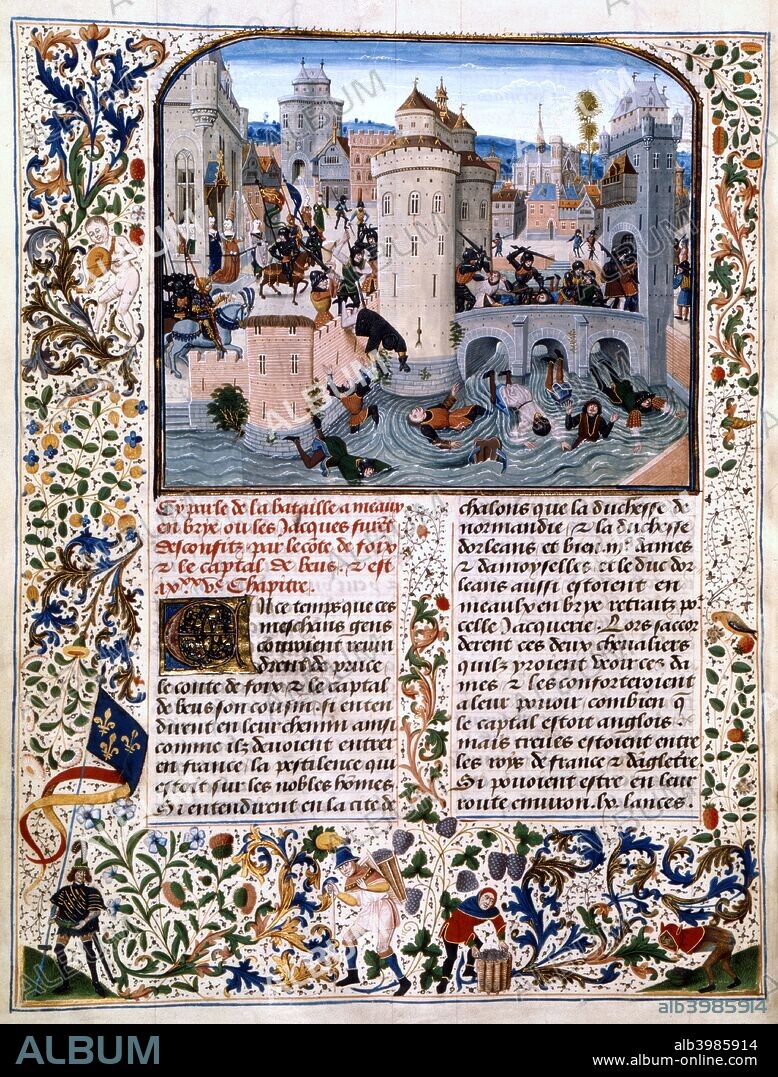 Cy parle de la bataille a meaux
en brye ou les Jacques furẽt
desconfitz par le cõte de foix
⁊ le captal de beus. ⁊ est
Chapitre.
En ce temps que ces
meschans gens
couroient reuin
drent de pruce
le conte de foix ⁊ le captal
de beus son cousin. si enten
dirent en leur chemin ainsi
comme ilz deuoient entrer
en france la pestilence qui
estoit sur les nobles hõmes.
Si entendirent en la cite de
chalons que la duchesse de
normandie ⁊ la duchesse
dorleans et bien dames
⁊ damoyselles et le duc dor
leans aussi estoient en
meaulx en brye retraitz por
celle Jacquerie. Lors saccor
derent ces deux cheualiers
quilz yroient veoir ces da
mes ⁊ les conforteroient
a leur pouoir combien q̃
le captal estoit anglois.
mais treues estoient entre
les roys de france ⁊ dãgletre
Si pouoient estre en leur
route enuiron lx lances.
alb3985914
ALBUM
alb3985914
www.album-online.com